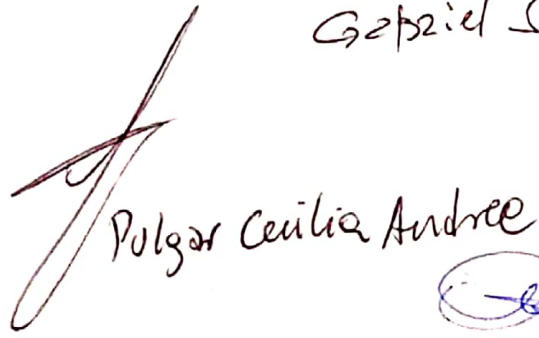 Gabriel S
Pulgar Cecilia Andree